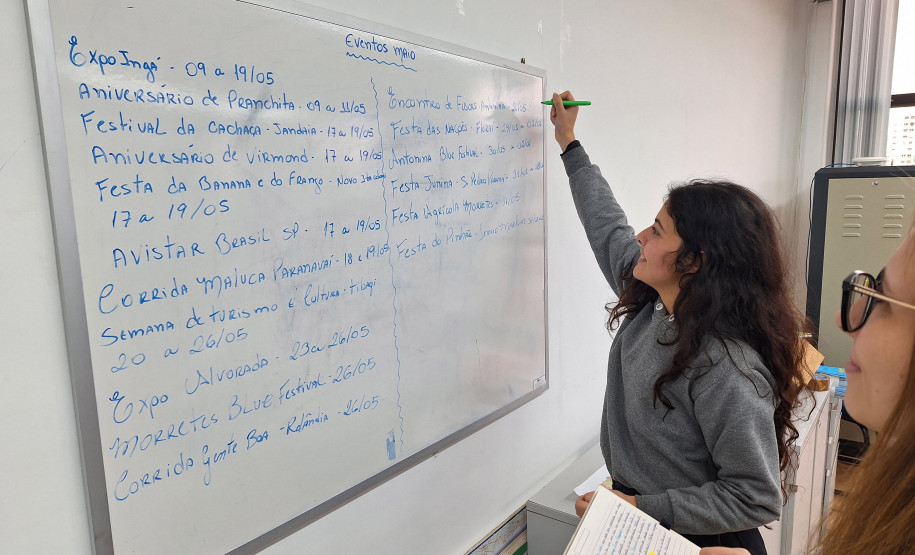 Eventos maio
Expo Ingá - 09 a 19/05
Aniversário de Pranchita - 09 a 11/05
Festival da cachaça - Jandaia - 17 a 19/05
Aniversário de Virmond - 17 a 19/05
Festa da Banana e do Frango - Novo
17 a 19/05
Avistar Brasil SP - 17 a 19/05
Corrida Maluca Paranavaí - 18 e 19/05
Semana de turismo e Cultura - Tibagi
20 a 26/05
Expo Alvorada - 23 a 26/05
Morretes Blue Festival - 26/05
Corrida Gente Boa - Rolândia - 26/05
Encontro de Fuscas
Festa das Nações - Floraí
Antonina Blue Festival - 30/05 a
Festa Junina - S. Pedro
Festa Agrícola Morretes
Festa do Pinhão